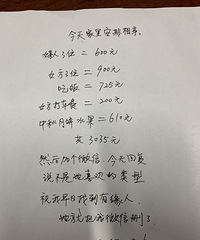 今天家里安排相亲。
媒人3位 = 600元
女方3位 = 900元
吃饭 = 725元
女子打车费 = 200元
中秋月饼水果 = 610元
共3035元
然后加个微信。今天回复
说不是她喜欢的类型
祝我早日找到有缘人
她就把我微信删了